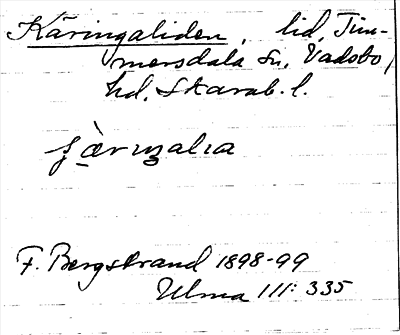 Käringaliden, lid, Tim-
mersdala sn, Vadsbo
hd, Skarab. l.
ʃæ̀rıŋalıa
F. Bergstrand 1898-99
Ulma 111: 335